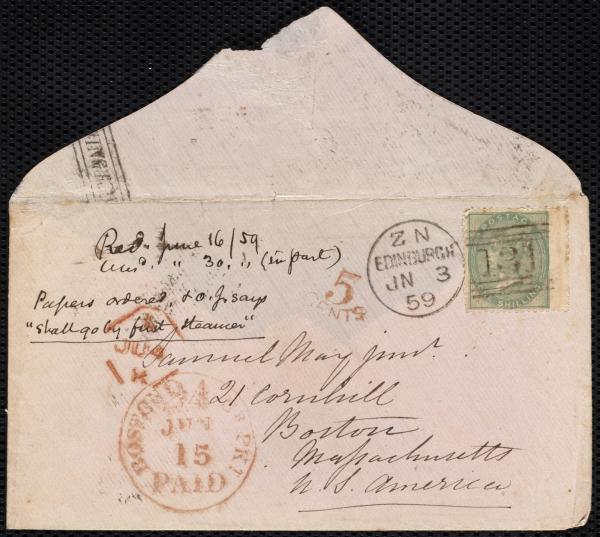 Recd. June 16/59.
Ans'd. " 30. " (in part)
Papers ordered, & O. J. says
"shall go by first steamer"
5
CENTS
Z N
EDINBURGH
JN 3
59
POSTAGE
131
SHILLING
Samuel May junr.
21 Cornhill
Boston
Massachusetts
U. S. America
BOSTON BR PKT
24
JUN
15
PAID